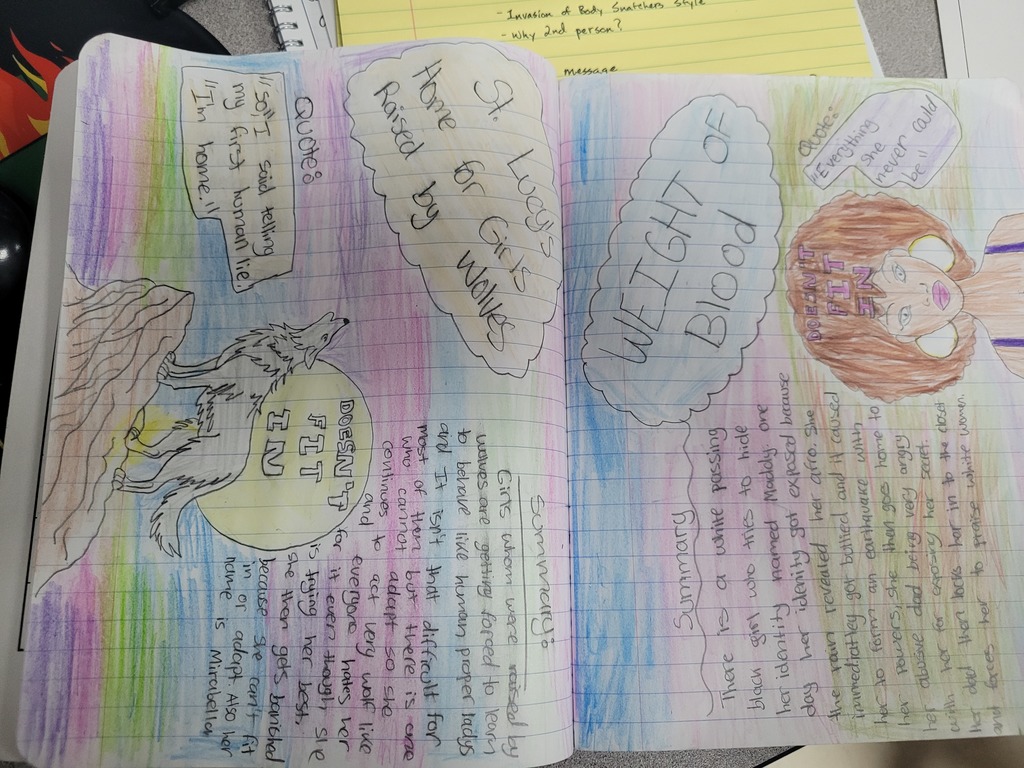 - Invasion of Body Snatchers Style
- Why 2nd person?
message
St. Lucy's
Home for Girls
Raised by Wolves
Quote:
"So," I said telling
my first human lie.
"I'm home."
DOESN'T
FIT
IN
Summary:
Girls whom were raised by
wolves are getting forced to learn
to behave like human proper ladys
and It isn't that difficult for
most of them but there is one
who cannot adapt so she
continues to act very wolf like
and to everyone hates her
for it even though she
is trying her best,
she then gets banished
because she can't fit
in or adapt Also her
name is Mirabella
WEIGHT OF
Blood
Quote:
"Everything
she
never could
be"
DOESN'T
FIT
IN
Summary
There is a white passing
black girl who tries to hide
her identity named Maddy one
day her idenity got exposed because
the rain revealed her afro. She
immediatley got bullied and it caused
her to form an earthquake with
her powers, she then goes home to
her abusive dad being very angry
with her for exposing her secret.
her dad then locks her in to the closet
and forces her to praise white women.